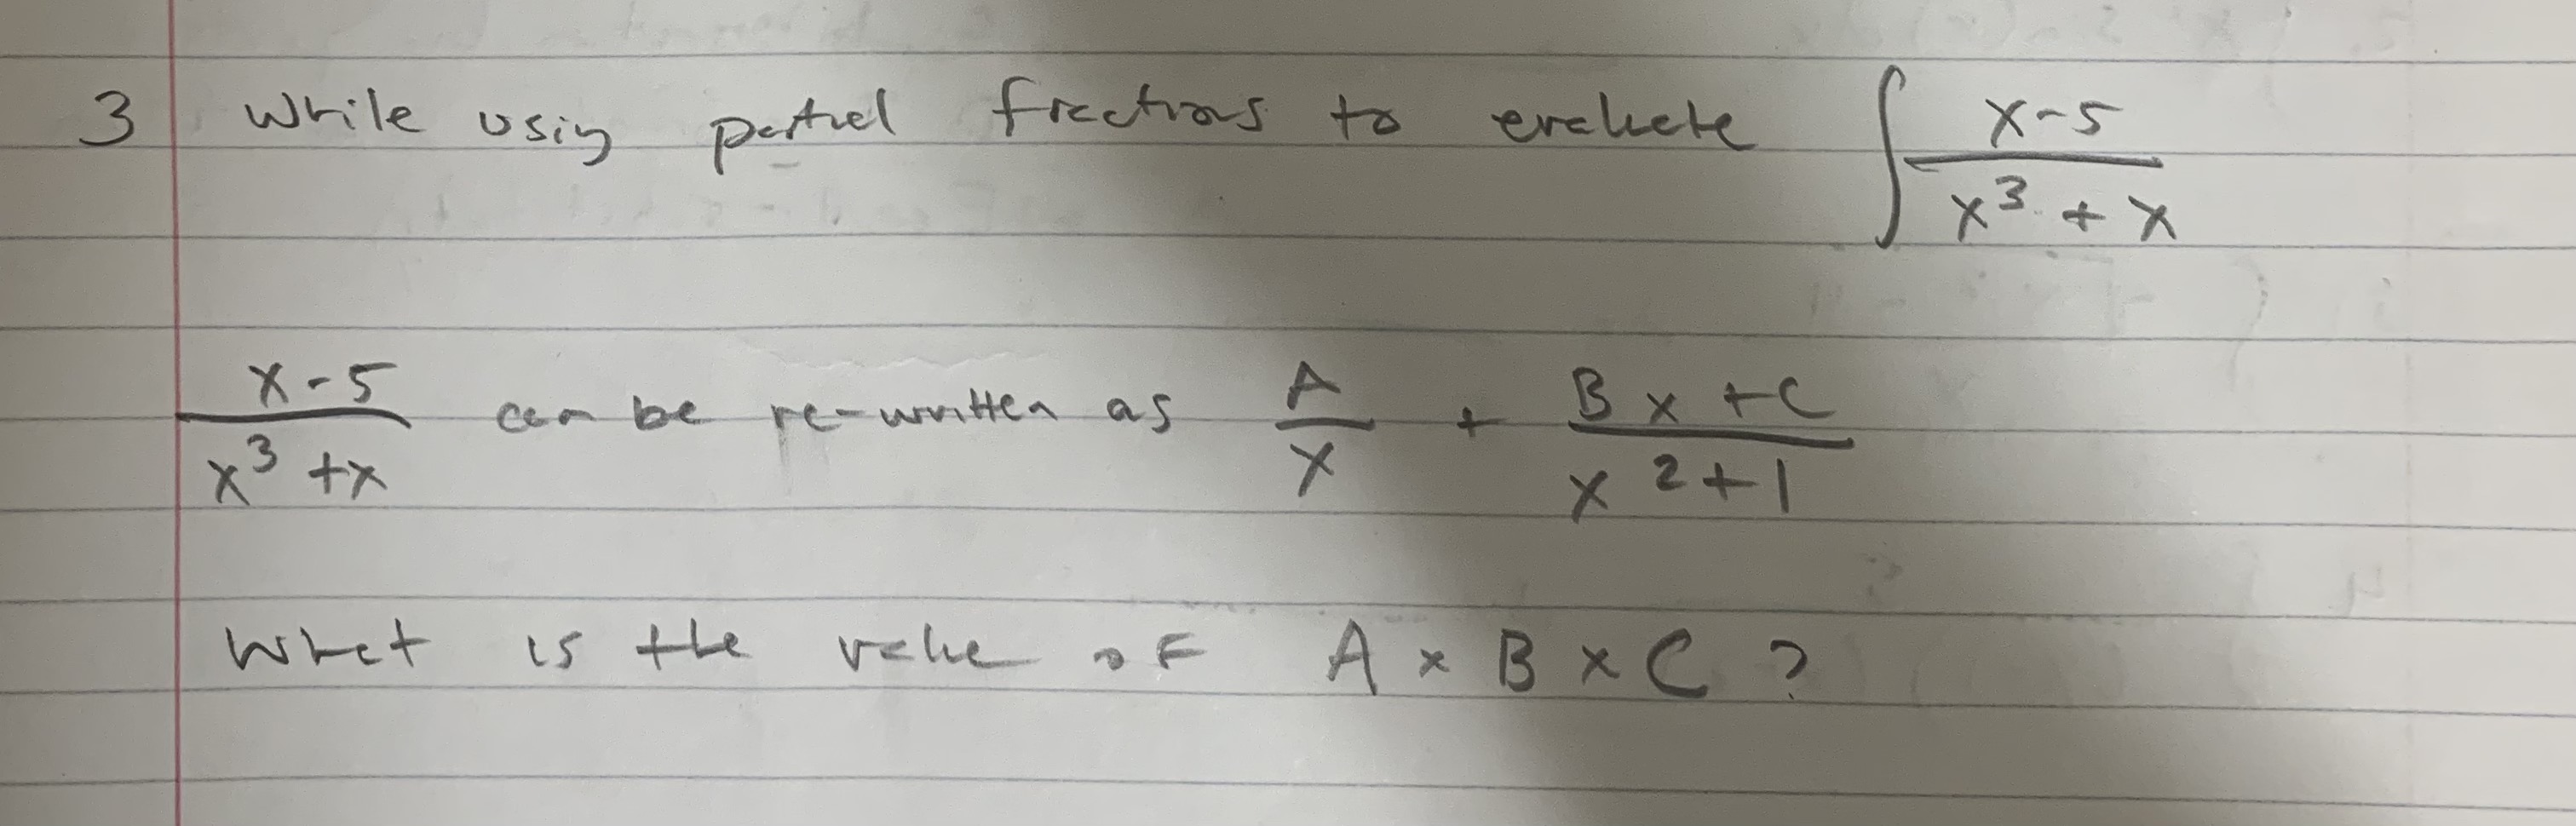 3 While using partial fractions to evaluate ∫ x-5 / x³ + x
x-5 / x³ + x can be re-written as A / x + Bx + C / x² + 1
What is the value of A × B × C ?